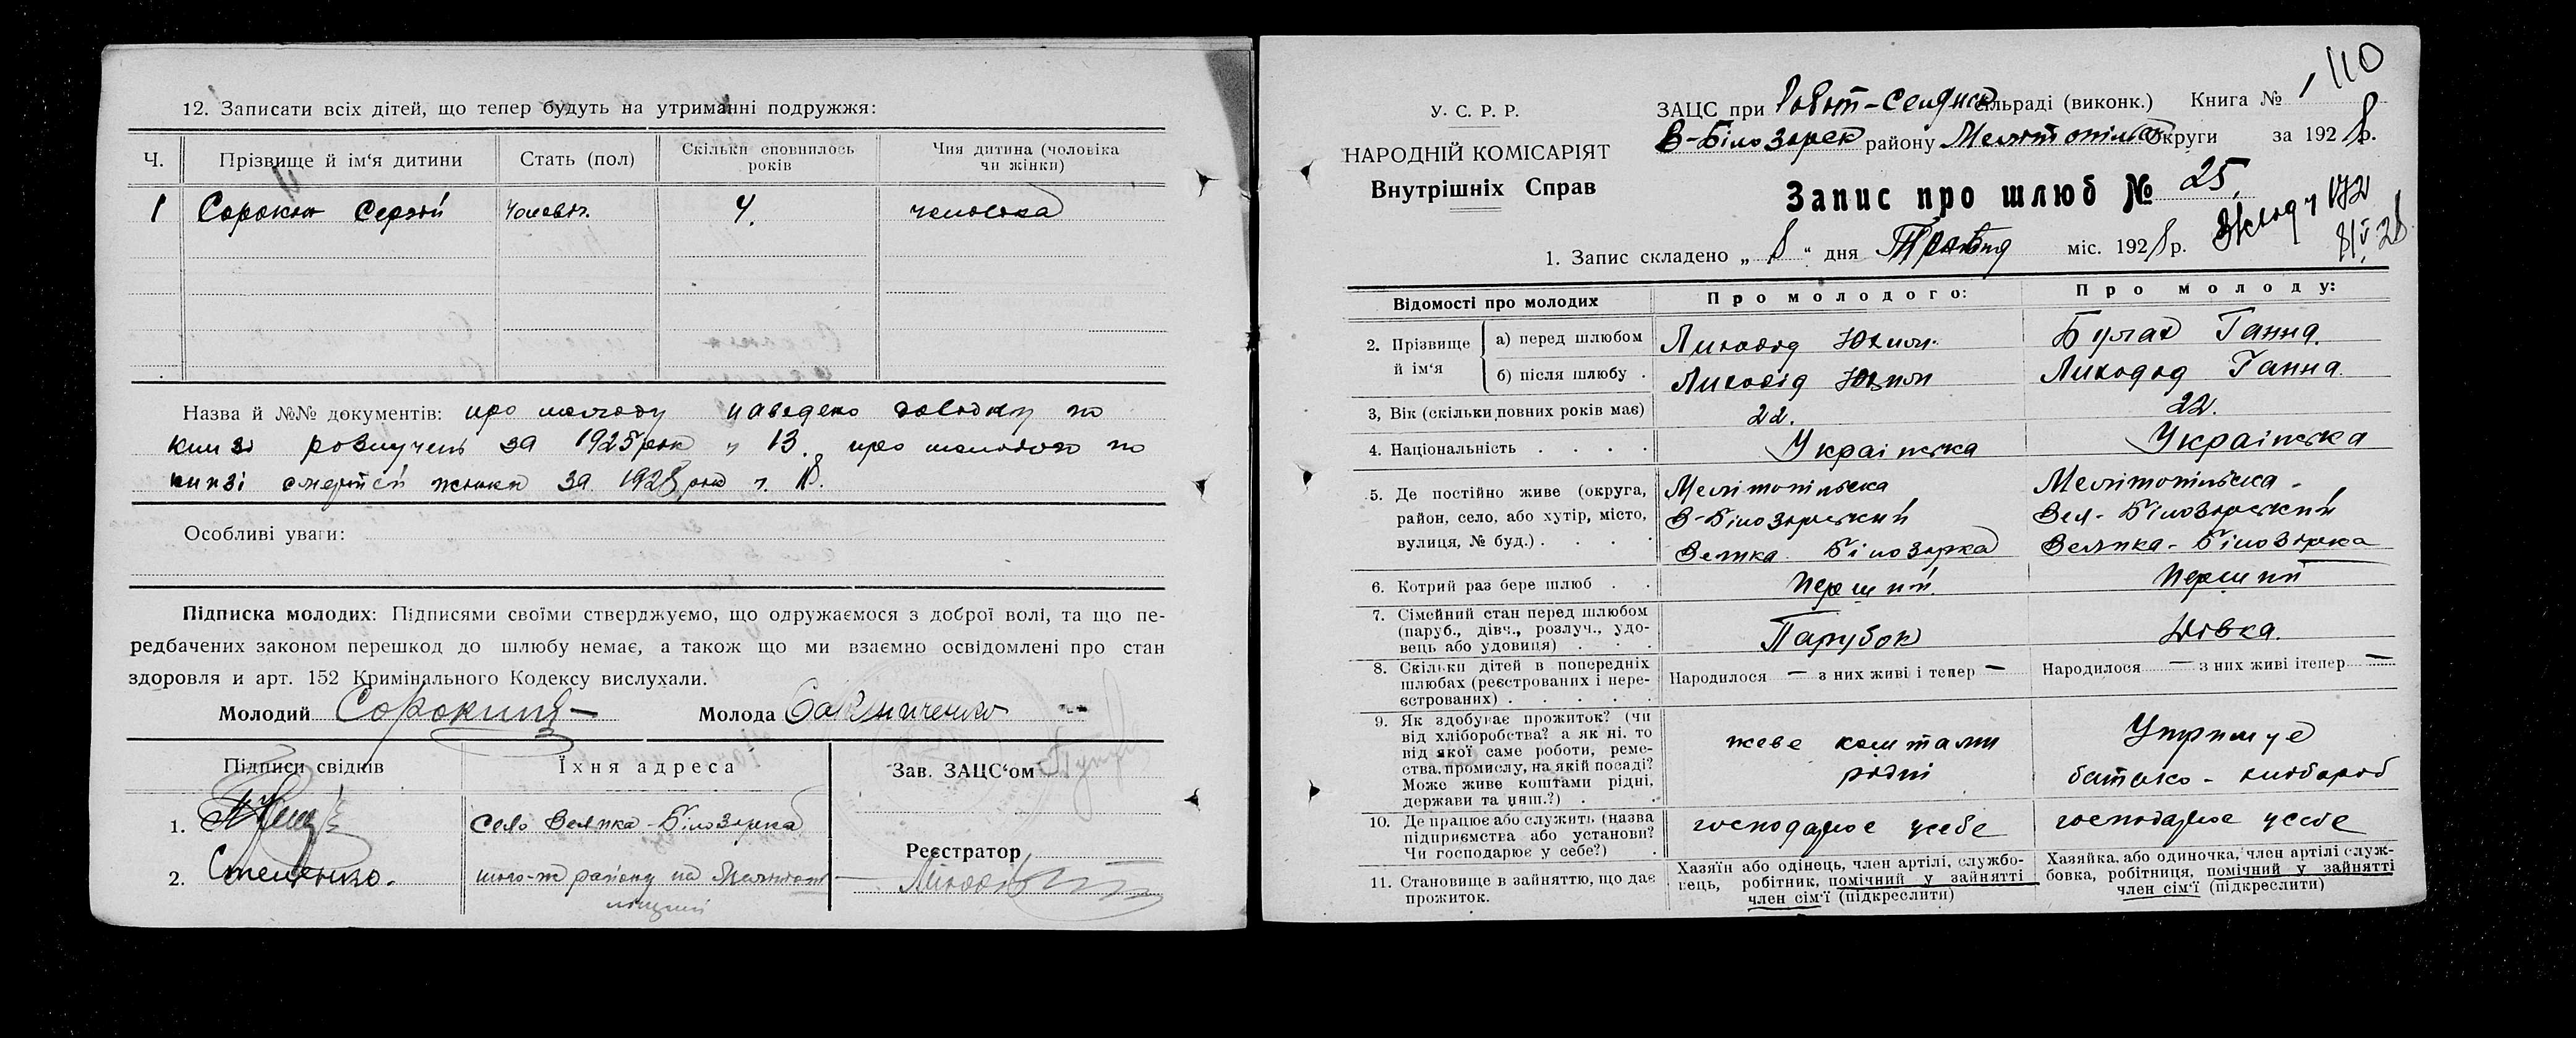 12. Записати всіх дітей, що тепер будуть на утриманні подружжя:
Ч. Прізвище й ім'я дитини Стать (пол) Скільки сповнилось років Чия дитина (чоловіка чи жінки)
1 Сорокин Сергій чоловіч. 4. чоловіка
Назва й №№ документів: про молоду наведено довідку по
книзі розлучень за 1925 рок ч 13. про молодого по
книзі смертей жінки за 1928 рок ч. 18.
Особливі уваги:
Підписка молодих: Підписями своїми стверджуємо, що одружаємося з доброї волі, та що пе-
редбачених законом перешкод до шлюбу немає, а також що ми взаємно освідомлені про стан
здоровля и арт. 152 Кримінального Кодексу вислухали.
Молодий Сорокин Молода
Підписи свідків Їхня адреса Зав. ЗАЦС'ом
1. село Велика-Білозірка
Реєстратор
2. Стеценко. того-ж району на
У. С. Р. Р.
НАРОДНІЙ КОМІСАРІЯТ
Внутрішніх Справ
110
ЗАЦС при сільраді (виконк.) Книга № 1
В-Білозорск району Мелітопільск Округи за 1928 р.
Запис про шлюб № 25.
172
8/V 28
1. Запис складено „ 8 “ дня Травня міс. 1928 р.
Відомості про молодих Про молодого: Про молоду:
2. Прізвище й ім'я а) перед шлюбом Лиходід Юхим Булах Ганна.
б) після шлюбу . Лиходід Юхим Лиходод Ганна
3, Вік (скільки повних років має) 22. 22.
4. Національність . . . . Українська Українська
5. Де постійно живе (округа, район, село, або хутір, місто, вулиця, № буд.) . . . .
Мелітопільска Мелітопільска -
В-Білозірський Вел-Білозірський
Велика Білозірка Велика-Білозірка
6. Котрий раз бере шлюб . . Перший Перший
7. Сімейний стан перед шлюбом (паруб., дівч., розлуч., удо-
вець або удовиця) . . . Парубок Дівка.
8. Скільки дітей в попередніх шлюбах (реєстрованих і нере-
єстрованих) . . . . . Народилося — з них живі і тепер — Народилося — з них живі ітепер —
9. Як здобуває прожиток? (чи від хліборобства? а як ні, то
від якої саме роботи, реме-
ства, промислу, на якій посаді?
Може живе коштами рідні,
держави та инш.?) . .
живе коштами рідні
Утримує батько - хлібороб
10. Де працює або служить (назва
підприємства або установи?
Чи господарює у себе?) .
господарює усебе господарює усебе
11. Становище в зайняттю, що дає
прожиток.
Хазяїн або одінець, член артілі, службо-
вець, робітник, помічний у зайнятті
член сім'ї (підкреслити)
Хазяйка, або одиночка, член артілі служ-
бовка, робітниця, помічний у зайнятті
член сім'ї (підкреслити)